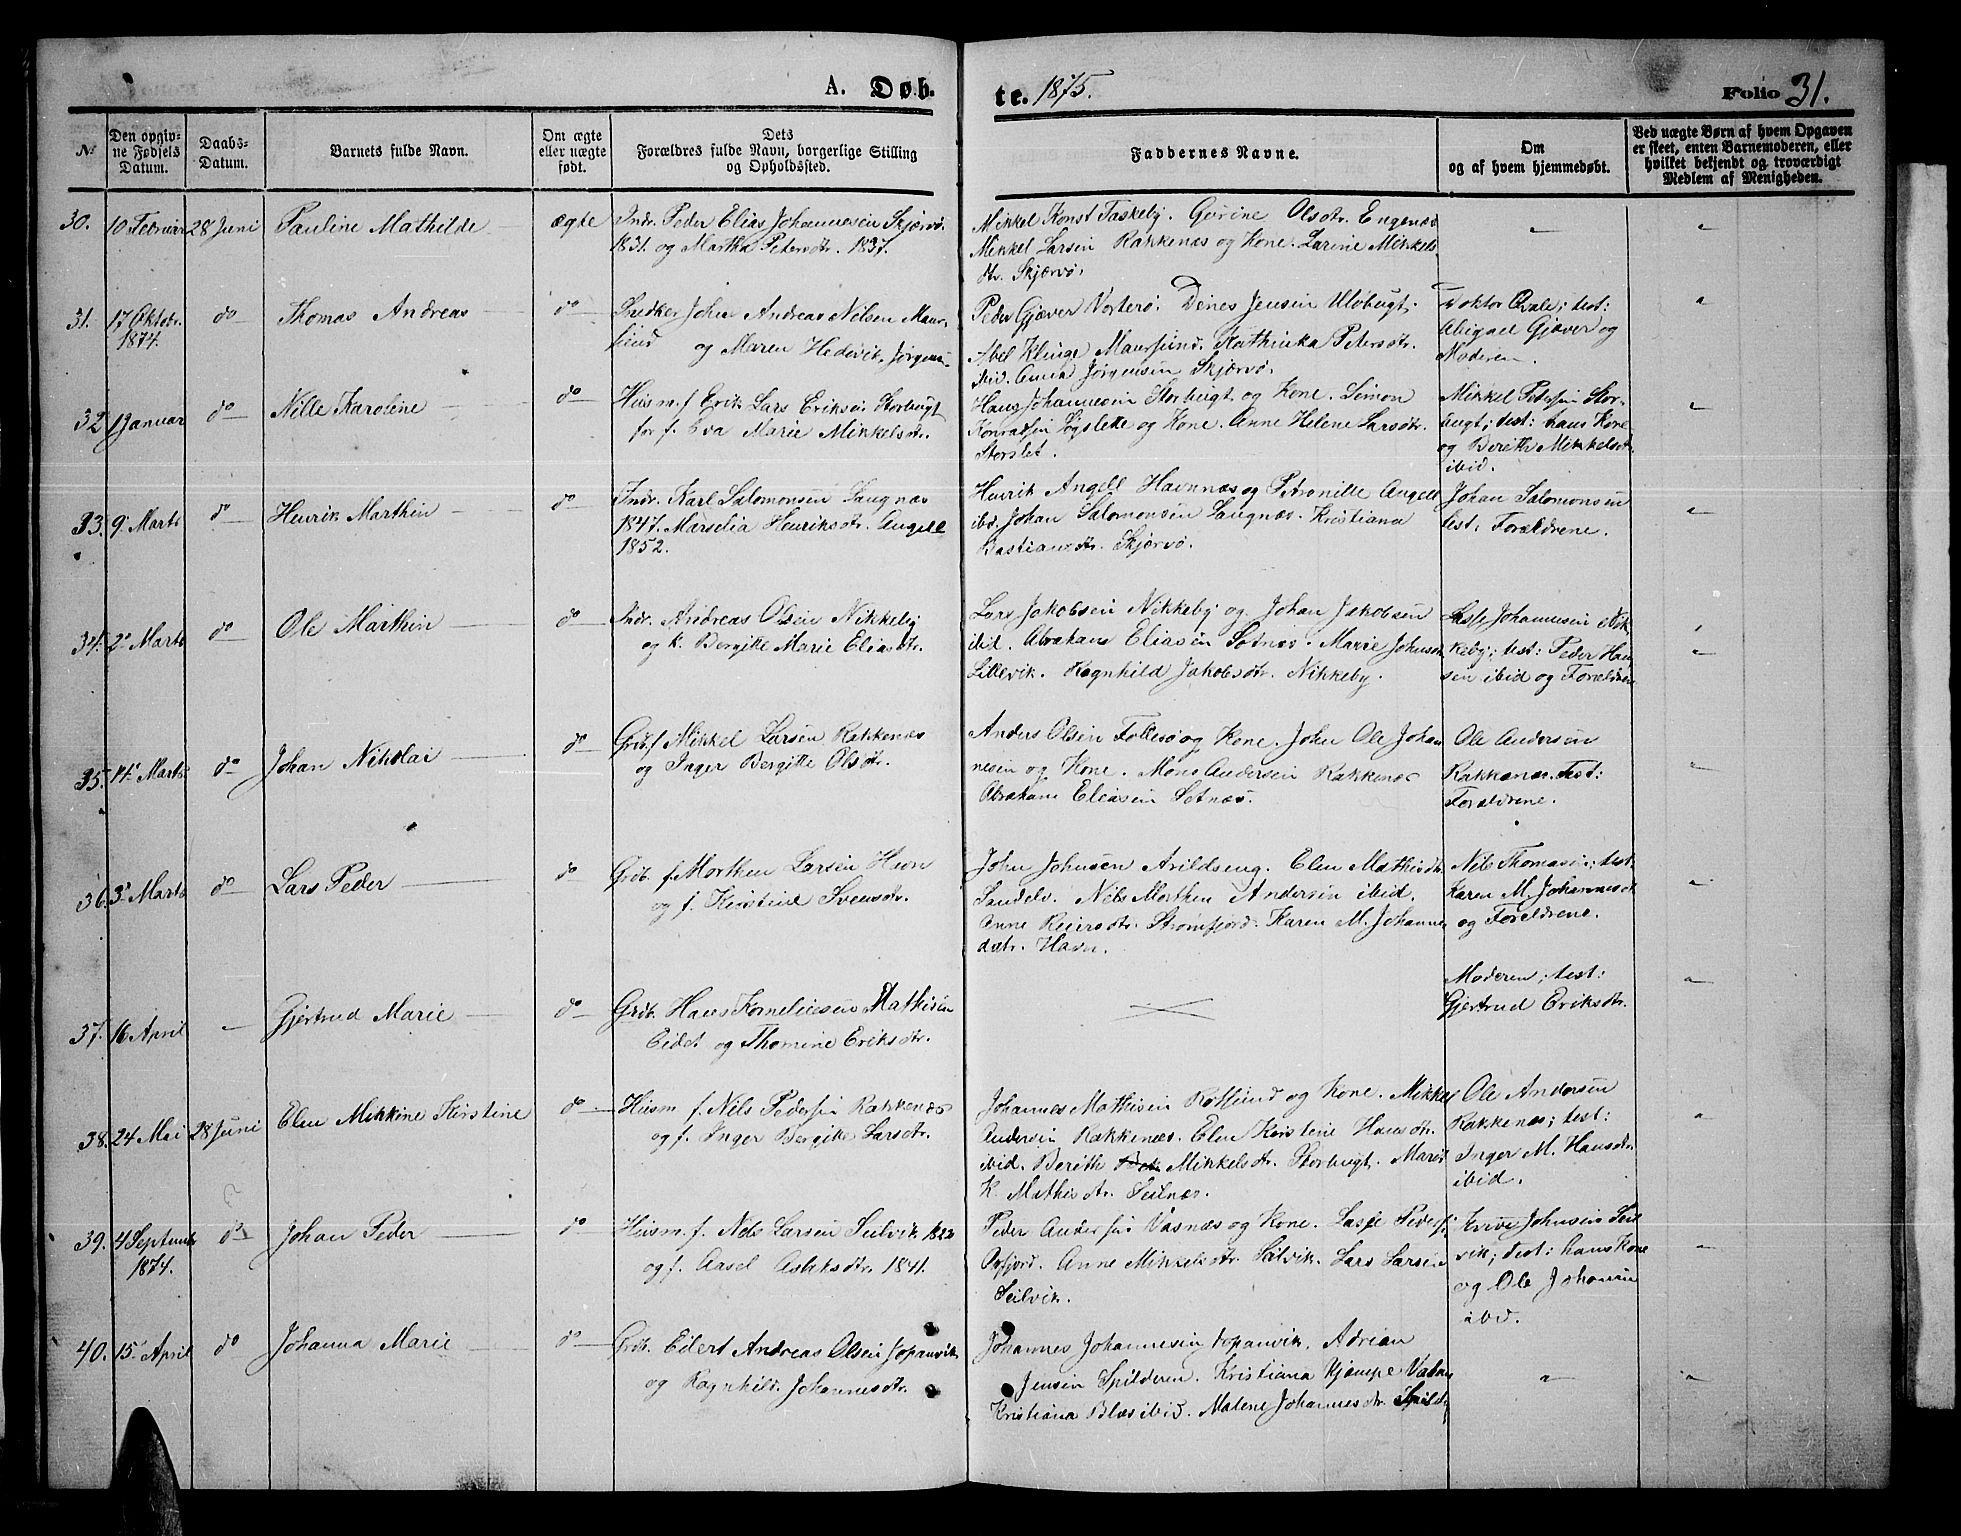 A. Døb.
te. 1875.
Folio 31.
№
Den opgiv-
ne Fødsels
Datum.
Daabs-
Datum.
Barnets fulde Navn.
Om ægte
eller uægte
født.
Dets
Forældres fulde Navn, borgerlige Stilling
og Opholdssted.
Faddernes Navne.
Om
og af hvem hjemmedøbt.
Ved uægte Børn af hvem Opgaven
er skeet, enten Barnemoderen, eller
hvilket bekjendt og troværdigt
Medlem af Menigheden.
30. 10 Februar 28 Juni Pauline Mathilde ægte
Indr. Peder Elias Johannesen Skjærvø.
1831. og Martha Petersdtr. 1837.
Mikkel Konst Taskeby. Gurine Olsdtr. Engenæs
Mikkel Larsen Rakkenæs og Kone. Larine Mikkels
dtr. Skjærvø.
31. 17 Oktobr.
1874. do Thomas Andreas do
Snedker John Andreas Nilsen Maur-
sund og Maren Hedevik Jørgens
Peder Gjæver Vorterø. Denes Jensen Uløbugt.
Abel Klinge Maursund. Kathinka Petersdtr.
ibid. Anna Jørgensen Skjærvø.
Doktor Qvale; test:
Abigael Gjæver og
Moderen.
32 1 Januar do Nille Karoline do
Husm. f. Erik Lars Eriksen Storbugt
for f. Eva Marie Mikkelsdtr.
Hans Johannesen Storbugt og Kone. Simon
Konradsen og Kone. Anne Helene Larsdtr.
Storslet.
Mikkel Petersen Stor-
bugt; test: hans Kone
og Berith Mikkelsdtr.
ibid.
33. 9 Marts do Henrik Marthin do
Indr. Karl Salomonsen Laugnæs
1847. Marselia Henriksdtr. Angell
1852.
Henrik Angell Havnnæs og Petronille Angell
ibd. Johan Salomonsen Laugnæs. Kristiana
Bastiansdtr. Skjærvø.
Johan Salomonsen
test: Forældrene.
34. 2 Marts do Ole Marthin do
Indr. Andreas Olsen Nikkeby
og k. Bergitte Marie Eliasdtr.
Lars Jakobsen Nikkeby og Johan Jakobsen
ibid. Abraham Eliasen Sotnæs. Marie Johnsdtr
Lillevik. Ragnhild Jakobsdtr. Nikkeby.
Lasse Johannesen Nik-
keby; test: Peder Han
sen ibid og Forældrene
35. 14 Marts do Johan Nikolai do
Grdb. f Mikkel Larsen Rakkenæs
og Inger Bergitte Olsdtr.
Anders Olsen Follesø og Kone. John Ole Johan
nesen og Kone. Mons Andersen Rakkenæs
Abraham Eliasen Sotnæs.
Ole Andersen
Rakkenæs. Test:
Forældrene.
36. 3 Marts do Lars Peder do
Grdb. f. Morthen Larsen Havn
og f. Kirstine Svensdtr.
John Johnsen Arildseng. Elen Mathisdtr
Sandelv. Nils Morthen Andersen ibid.
Anne Reiersdtr. Strømfjord. Karen M. Johanne
dtr. Havn.
Nils Thomasen; test:
Karen M. Johannesdtr
og Forældrene.
37. 16 April Gjertrud Marie do
Grdb. Hans Korneliusen Mathisen
Eidet og Thomine Eriksdtr.
Moderen; test:
Gjertrud Eriksdtr.
38. 24 Mai 28 Juni Elen Mikkine Kirstine do
Husm f. Nils Pedersen Rakkenæs
og f. Inger Bergitte Larsdtr.
Johannes Mathisen Rotsund og Kone. Mikkel
Andersen Rakkenæs. Elen Kirstine Hansdtr.
ibid. Berith Mikkelsdtr. Storbugt. Marit
K. Mathisdtr. Seilnæs.
Ole Andersen
Rakkenæs; test:
Inger M. Hansdtr.
ibid.
39. 4 Septemb
1874. do Johan Peder do
Husm. f. Nils Larsen Seilvik 1822
og f. Aasel Aslaksdtr. 1841.
Peder Andersen Vasnæs og Kone. Lasse Peders
Oxfjord. Anne Mikkelsdtr. Seilvik. Lars Larsen
Seilvik.
Johnsen Seil
vik; test: hans Kone
og Ole Johansen
ibd.
40. 15 April do Johanna Marie do
Grdb. Eilert Andreas Olsen Jopanvik
og Ragnhild Johannesdtr.
Johannes Johannesen Jopanvik. Adrian
Jensen Spilderen. Kristiana Kjempe
Kristiana Blæs ibid. Malene Johannesdtr. Spild.